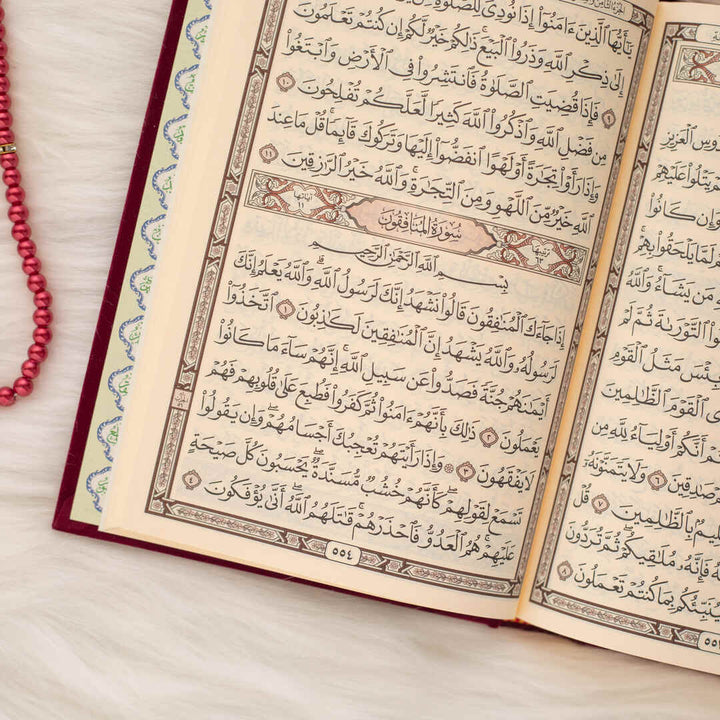 يَٰٓأَيُّهَا ٱلَّذِينَ ءَامَنُوٓا۟ إِذَا نُودِىَ لِلصَّلَوٰةِ مِن
إِلَىٰ ذِكْرِ ٱللَّهِ وَذَرُوا۟ ٱلْبَيْعَ ۚ ذَٰلِكُمْ خَيْرٌ لَّكُمْ إِن كُنتُمْ تَعْلَمُونَ
٩ فَإِذَا قُضِيَتِ ٱلصَّلَوٰةُ فَٱنتَشِرُوا۟ فِى ٱلْأَرْضِ وَٱبْتَغُوا۟
مِن فَضْلِ ٱللَّهِ وَٱذْكُرُوا۟ ٱللَّهَ كَثِيرًا لَّعَلَّكُمْ تُفْلِحُونَ ١٠
وَإِذَا رَأَوْا۟ تِجَٰرَةً أَوْ لَهْوًا ٱنفَضُّوٓا۟ إِلَيْهَا وَتَرَكُوكَ قَآئِمًا ۚ قُلْ مَا عِندَ
ٱللَّهِ خَيْرٌ مِّنَ ٱللَّهْوِ وَمِنَ ٱلتِّجَٰرَةِ ۚ وَٱللَّهُ خَيْرُ ٱلرَّٰزِقِينَ ١١
ترتيبها ٦٣ سُورَةُ المُنَافِقُون آياتها ١١
بِسْمِ ٱللَّهِ ٱلرَّحْمَٰنِ ٱلرَّحِيمِ
إِذَا جَآءَكَ ٱلْمُنَٰفِقُونَ قَالُوا۟ نَشْهَدُ إِنَّكَ لَرَسُولُ ٱللَّهِ ۗ وَٱللَّهُ يَعْلَمُ إِنَّكَ
لَرَسُولُهُۥ وَٱللَّهُ يَشْهَدُ إِنَّ ٱلْمُنَٰفِقِينَ لَكَٰذِبُونَ ١ ٱتَّخَذُوٓا۟
أَيْمَٰنَهُمْ جُنَّةً فَصَدُّوا۟ عَن سَبِيلِ ٱللَّهِ ۚ إِنَّهُمْ سَآءَ مَا كَانُوا۟
يَعْمَلُونَ ٢ ذَٰلِكَ بِأَنَّهُمْ ءَامَنُوا۟ ثُمَّ كَفَرُوا۟ فَطُبِعَ عَلَىٰ قُلُوبِهِمْ فَهُمْ
لَا يَفْقَهُونَ ٣ ۞ وَإِذَا رَأَيْتَهُمْ تُعْجِبُكَ أَجْسَامُهُمْ ۖ وَإِن يَقُولُوا۟
تَسْمَعْ لِقَوْلِهِمْ ۖ كَأَنَّهُمْ خُشُبٌ مُّسَنَّدَةٌ ۖ يَحْسَبُونَ كُلَّ صَيْحَةٍ
عَلَيْهِمْ ۚ هُمُ ٱلْعَدُوُّ فَٱحْذَرْهُمْ ۚ قَٰتَلَهُمُ ٱللَّهُ ۖ أَنَّىٰ يُؤْفَكُونَ ٤
٥٥٤
ٱلْعَزِيزِ
يَتْلُوا۟ عَلَيْهِمْ
وَإِن كَانُوا۟
لَمَّا يَلْحَقُوا۟ بِهِمْ ۚ
مَن يَشَآءُ ۚ وَٱللَّهُ
ٱلتَّوْرَىٰةَ ثُمَّ لَمْ
بِئْسَ مَثَلُ ٱلْقَوْمِ
ٱلْقَوْمَ ٱلظَّٰلِمِينَ
أَنَّكُمْ أَوْلِيَآءُ لِلَّهِ مِن
صَٰدِقِينَ ٦ وَلَا يَتَمَنَّوْنَهُۥٓ
بِٱلظَّٰلِمِينَ ٧ قُلْ
فَإِنَّهُۥ مُلَٰقِيكُمْ ۖ ثُمَّ تُرَدُّونَ
فَيُنَبِّئُكُم بِمَا كُنتُمْ تَعْمَلُونَ ٨